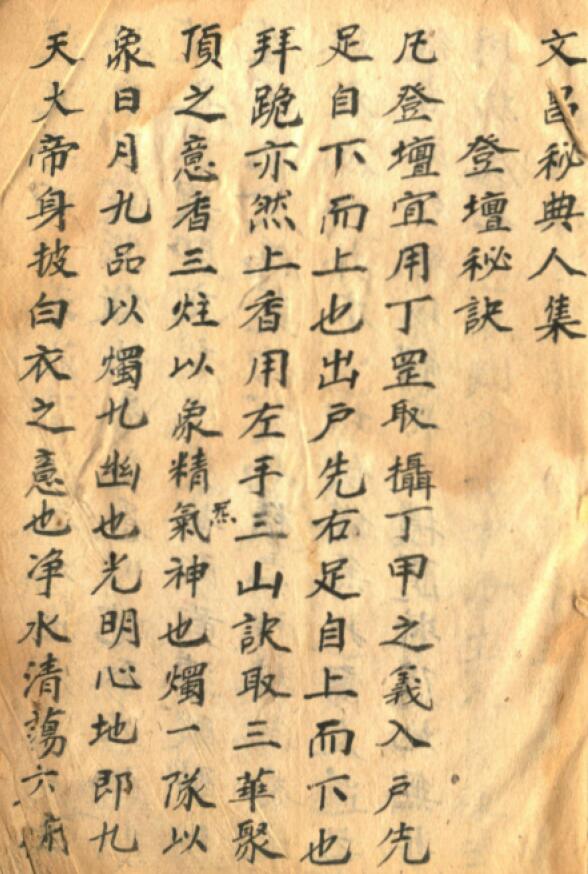 文昌秘典人集
登壇秘訣
凡登壇宜用丁罡取攝丁甲之義入戶先
足自下而上也出戶先右足自上而下也
拜跪亦然上香用左手三山訣取三華聚
頂之意香三炷以象精氣炁神也燭一隊以
象日月九品以燭九幽也光明心地即九
天大帝身披白衣之意也净水清蕩六